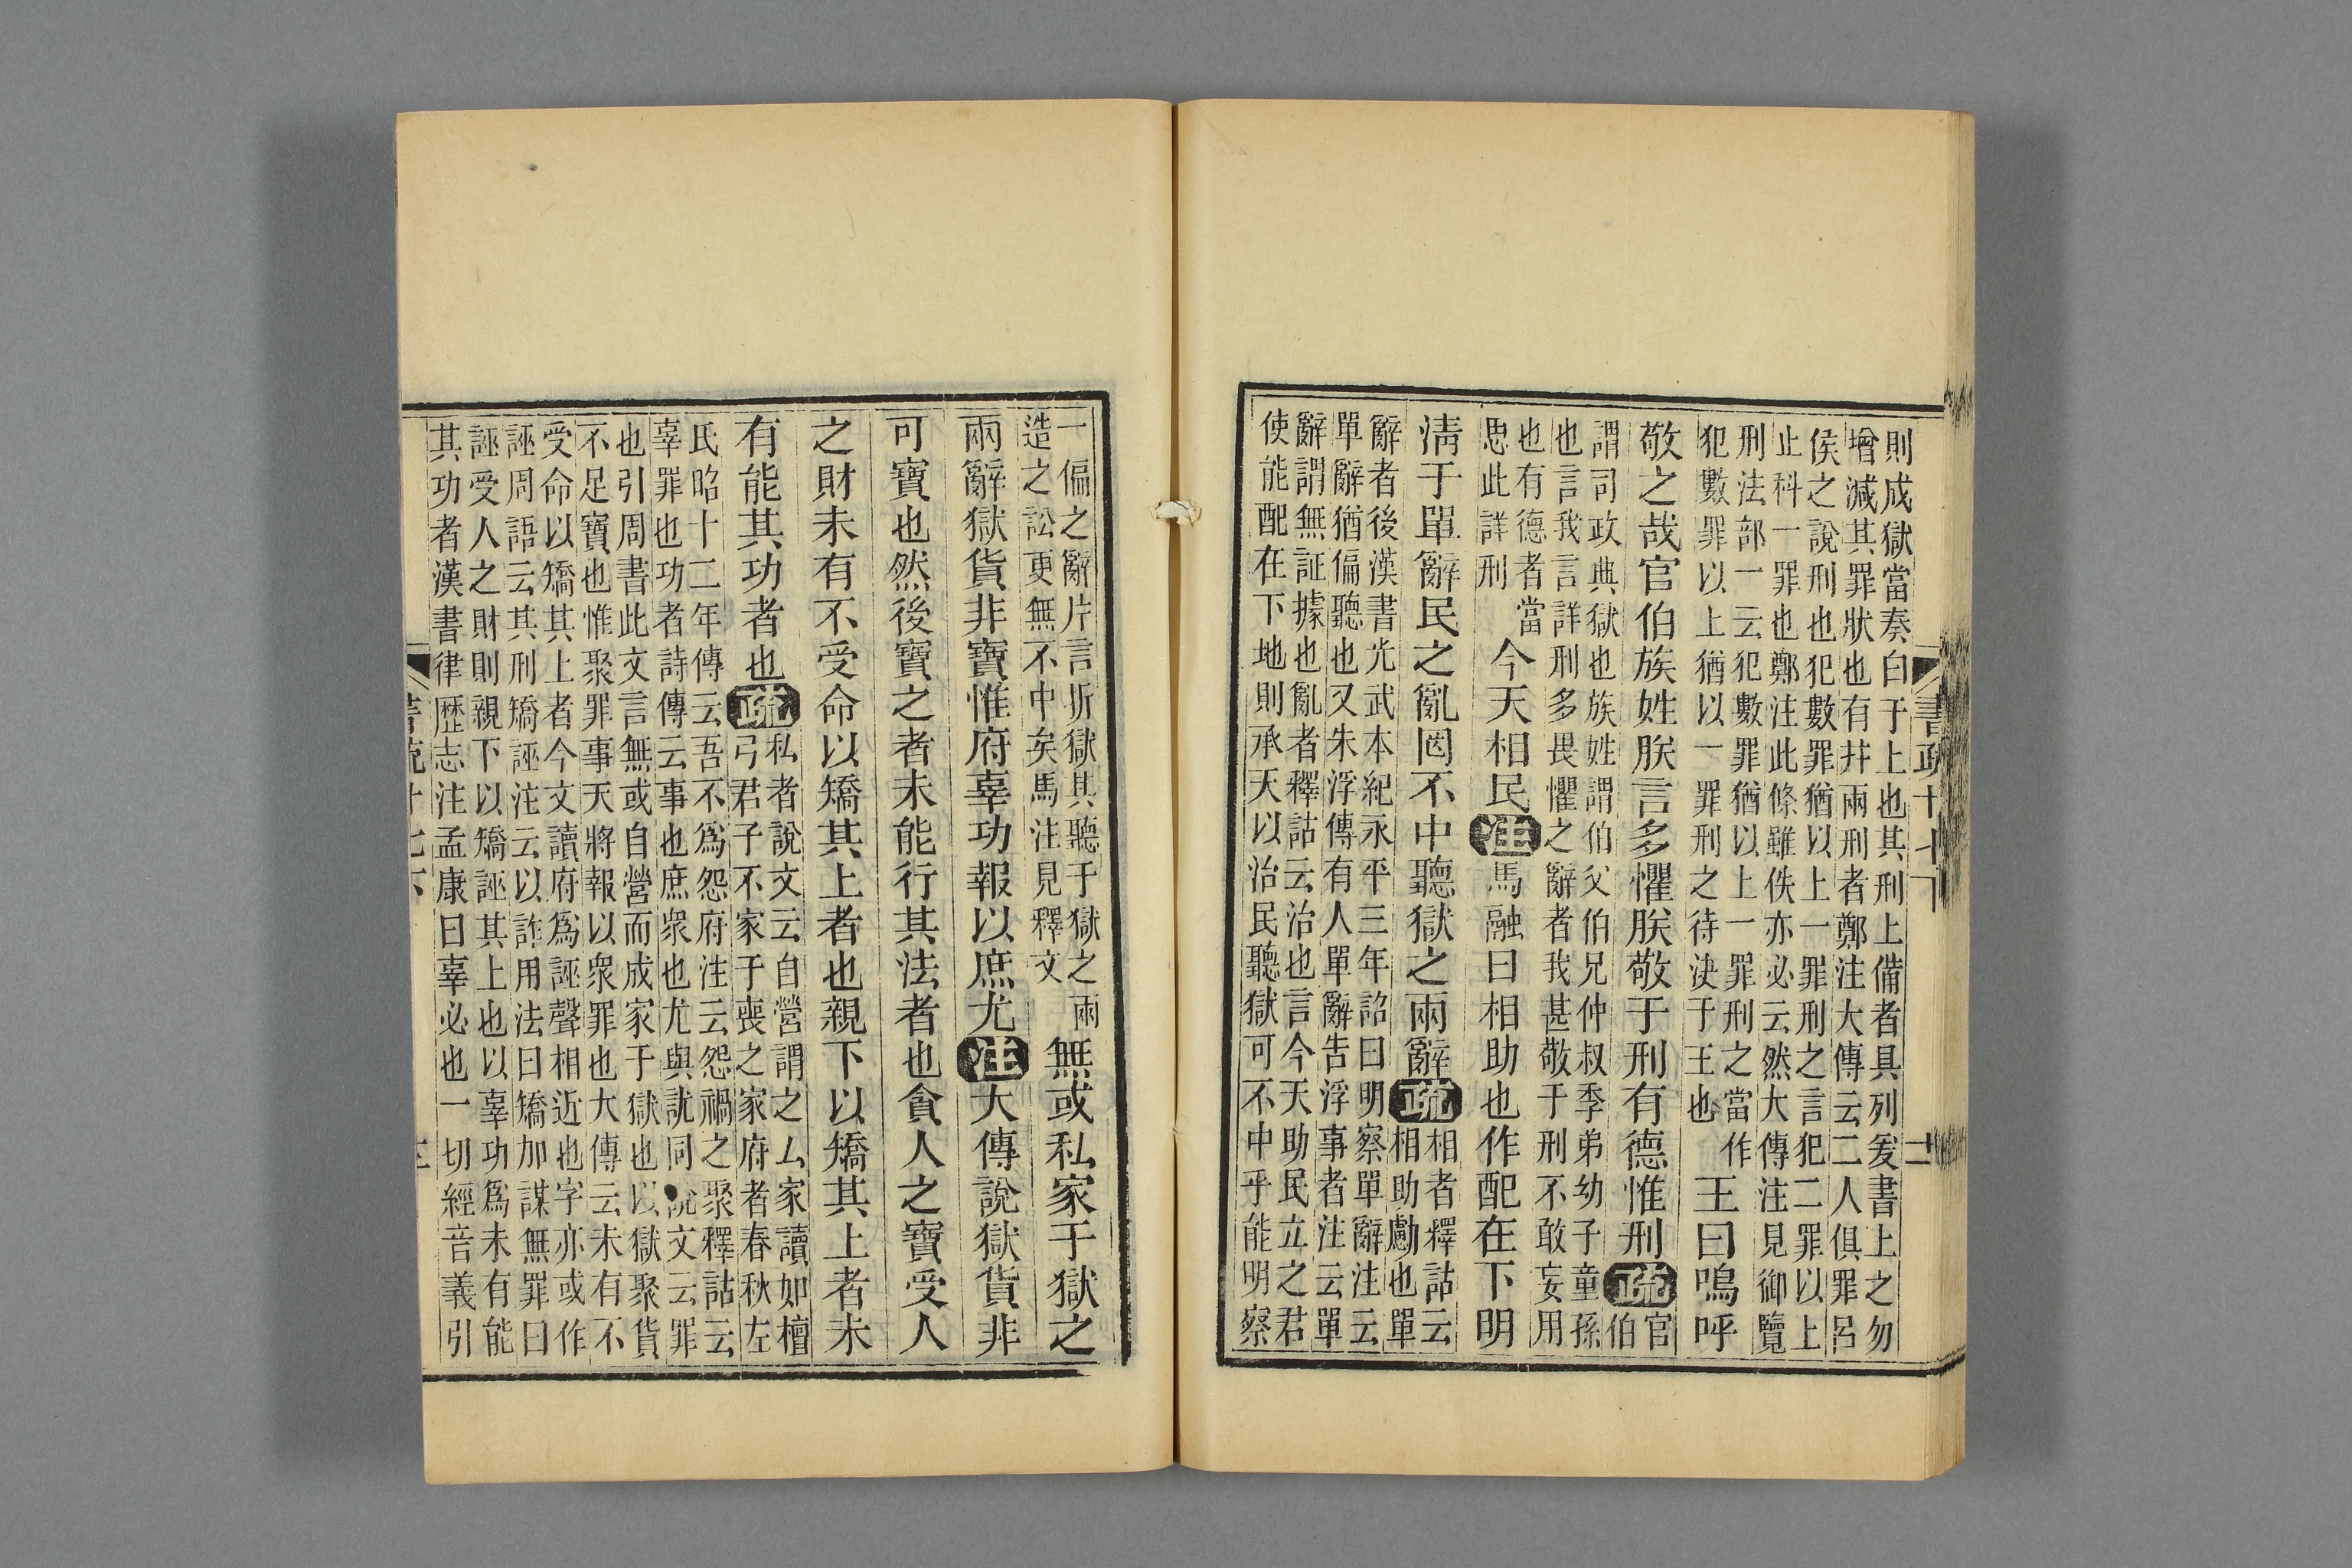 則成獄當奏白于上也其刑上備者具列爰書上之勿
增減其罪狀也有并兩刑者鄭注大傳云二人俱罪呂
侯之說刑也犯數罪猶以上一罪刑之言犯二罪以上
止科一罪也鄭注此條雖佚亦必云然大傳注見御覽
刑法部一云犯數罪猶以上一罪刑之當作
犯數罪以上猶以一罪刑之待決于王也
王曰嗚呼
敬之哉官伯族姓朕言多懼朕敬于刑有德惟刑
疏
官
伯
謂司政典獄也族姓謂伯父伯兄仲叔季弟幼子童孫
也言我言詳刑多畏懼之辭者我甚敬于刑不敢妄用
也有德者當
思此詳刑
今天相民
注
馬融曰相助也作配在下明
清于單辭民之亂罔不中聽獄之兩辭
疏
相者釋詁云
相助勴也單
辭者後漢書光武本紀永平三年詔曰明察單辭注云
單辭猶偏聽也又朱浮傳有人單辭告浮事者注云單
辭謂無証據也亂者釋詁云治也言今天助民立之君
使能配在下地則承天以治民聽獄可不中乎能明察
一偏之辭片言折獄其聽于獄之兩
造之訟更無不中矣馬注見釋文
無或私家于獄之
兩辭獄貨非寶惟府辜功報以庶尤
注
大傳說獄貨非
可寶也然後寶之者未能行其法者也貪人之寶受人
之財未有不受命以矯其上者也親下以矯其上者未
有能其功者也
疏
私者說文云自營謂之厶家讀如檀
弓君子不家于喪之家府者春秋左
氏昭十二年傳云吾不為怨府注云怨禍之聚釋詁云
辜罪也功者詩傳云事也庶衆也尤與訧同說文云罪
也引周書此文言無或自營而成家于獄也以獄聚貨
不足寶也惟聚罪事天將報以衆罪也大傳云未有不
受命以矯其上者今文讀府為誣聲相近也字亦或作
誣周語云其刑矯誣注云以詐用法曰矯加謀無罪曰
誣受人之財則親下以矯誣其上也以辜功為未有能
其功者漢書律歷志注孟康曰辜必也一切經音義引